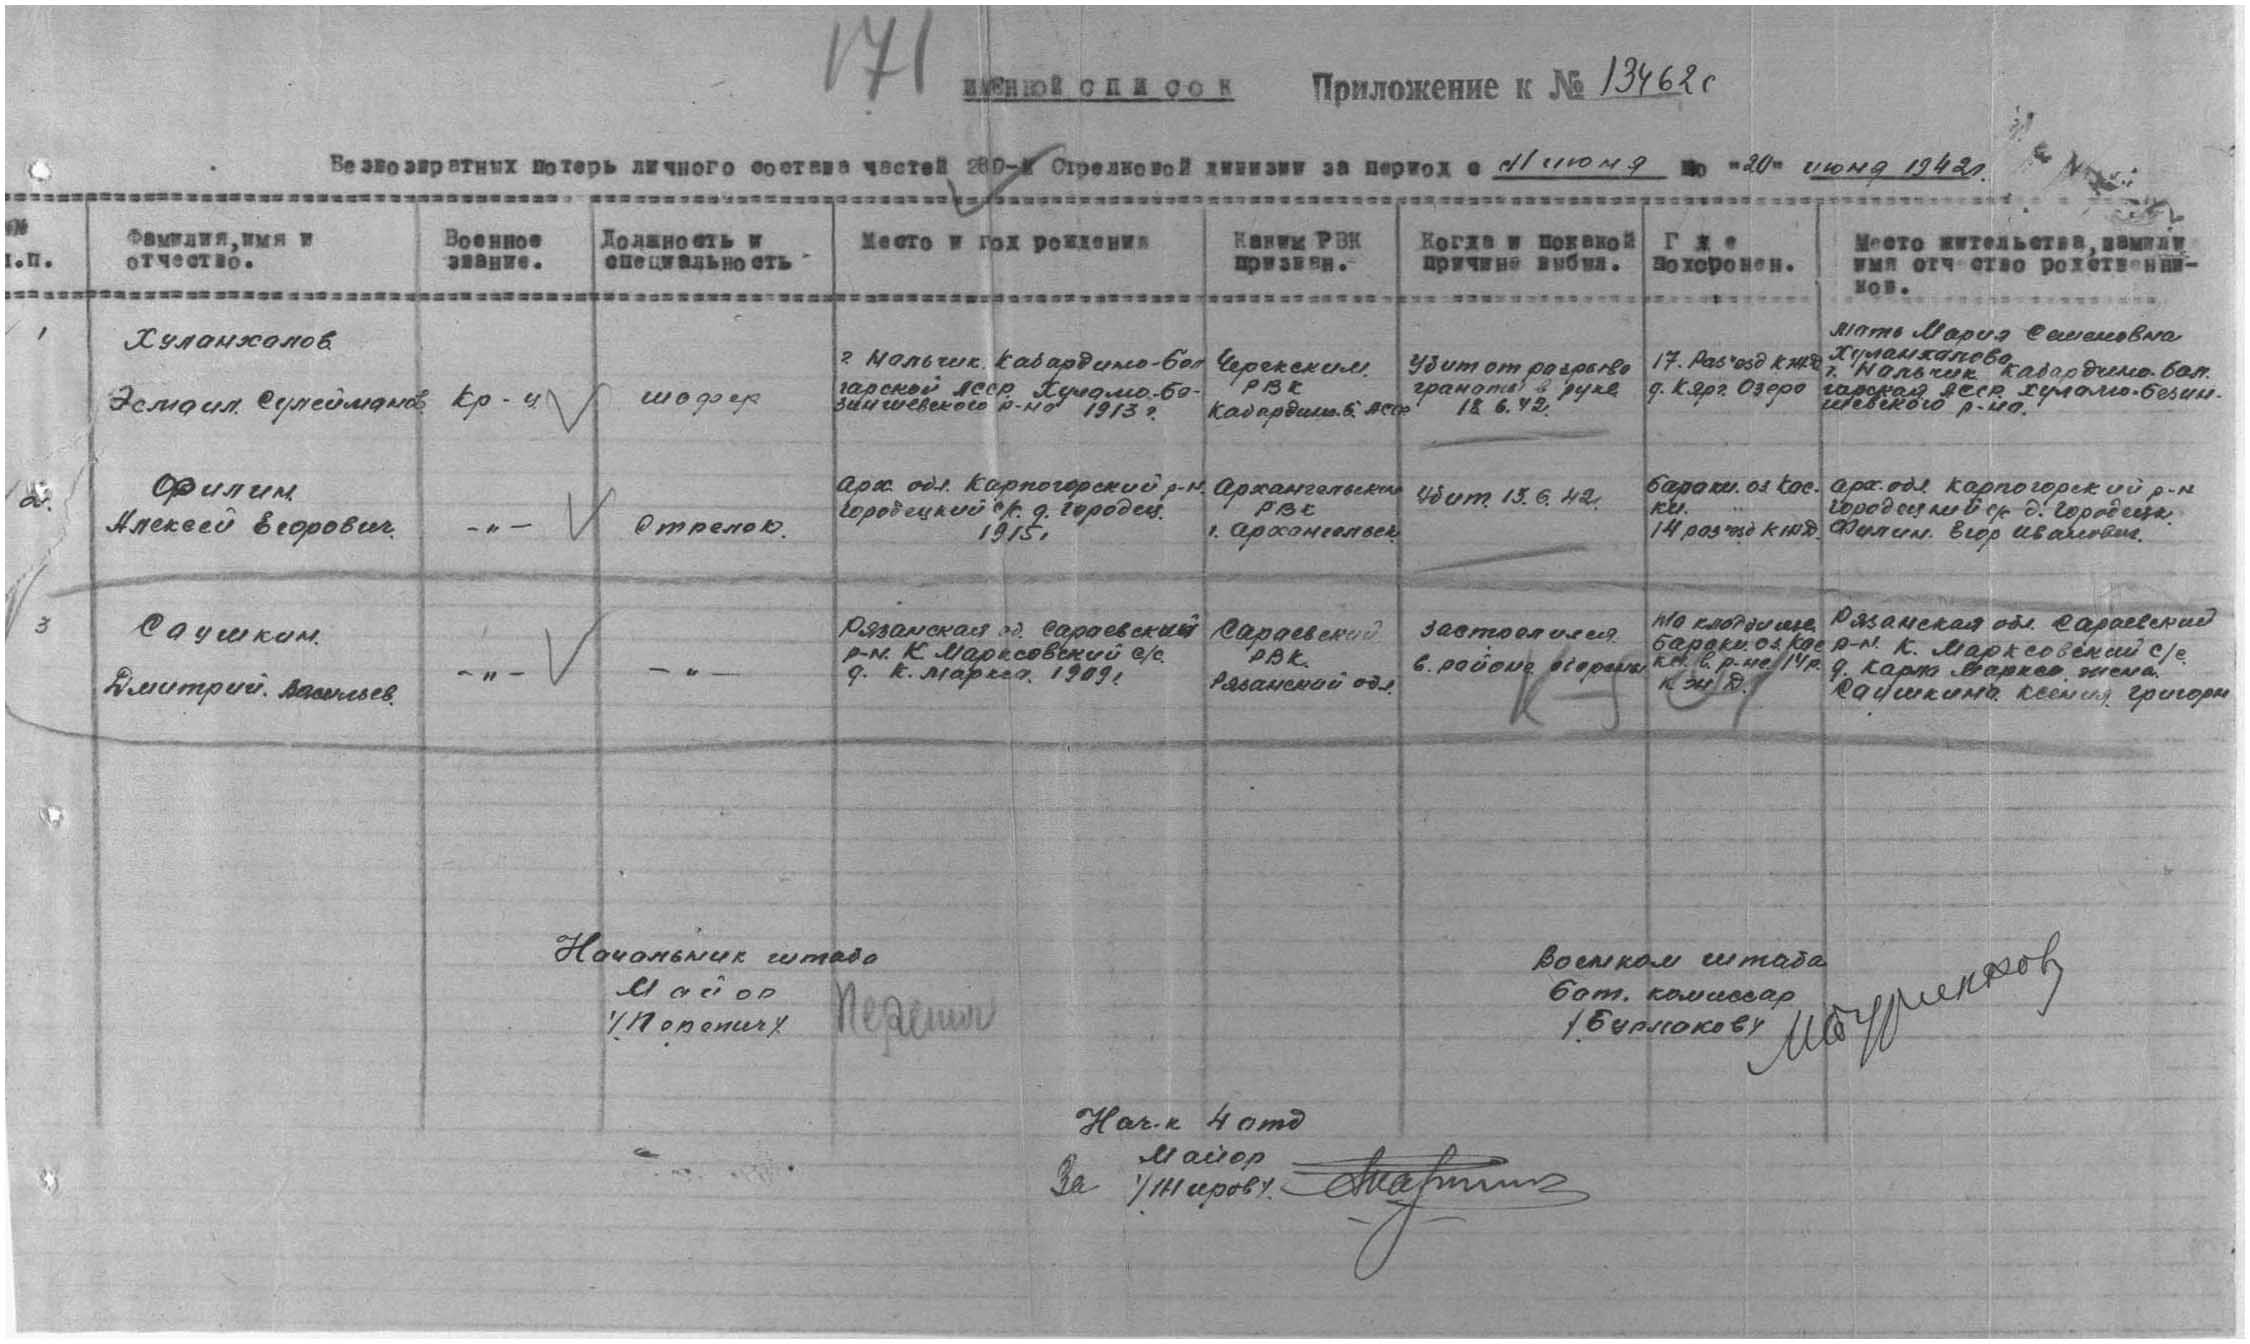 171
ИМЕННОЙ СПИСОК Приложение к № 13462с
Безвозвратных потерь личного состава частей 289-й Стрелковой дивизии за период с 11 июня по "20" июня 1942г.
№№ п.п.
Фамилия, имя и отчество.
Военное звание.
Должность и специальность
Место и год рождения
Каким РВК призван.
Когда и покакой причине выбыл.
Где похоронен.
Место жительства, фамили имя отчество родственни-ков.
1
Хуланхалов
Эсмаил Сулейманов
Кр-ц
шофер
г. Нальчик. Кабардино-бал
гарской АССР. Хуламо-бе-
зингиевского р-на 1913 г.
Черекским
РВК
Кабардино. Б. АССР
Убит от разрыва
гранаты в руке
18.6.42.
17. Раз'езд КЖД
д. Кярг. Озеро
мать Мария Семеновна
Хуланхалова
г. Нальчик Кабардино-бал.
гарская АССР. Хуламо-безин-
гиевского р-на.
2.
Филин.
Алексей Егорович.
-"-
Стрелок.
Арх. обл. Карпогорский р-н.
Городецкий с/с. д. Городец.
1915г
Архангельским
РВК
г. Архангельск
Убит. 15.6.42.
бараки. оз. Кос.
ки.
14 раз'езд КЖД.
Арх. обл. Карпогорский р-н
Городецкий с/с д. Городецк.
Филин. Егор Иванович.
3
Саушкин.
Дмитрий. Васильев.
-"-
-"-
Рязанская об. Сараевский
р-н. К. Марксовский с/с.
д. К. Маркса. 1909г
Сараевский
РВК.
Рязанской обл.
застрелился
в. районе обороны
На кладбище
бараки. оз. Кос
ки. в. р-не 14 р.
КЖД.
Рязанская обл. Сараевский
р-н. К. Марксовский с/с.
д. Карла Маркса. жена.
Саушкина. Ксения. Григорь
Начальник штаба
Майор
/Перепич/
Перепич
Военком штаба
бат. комиссар
/Бурлаков/
Нач-к 4 отд
Майор
За /Жиров/